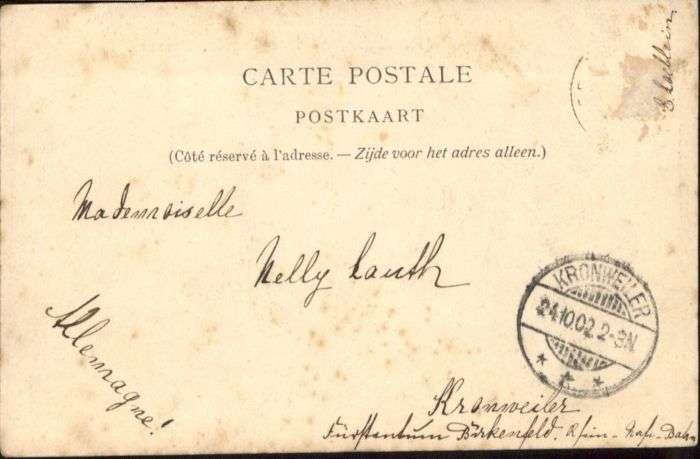 CARTE POSTALE
POSTKAART
(Côté réservé à l'adresse. — Zijde voor het adres alleen.)
Mademoiselle
Nelly Lauth
Allemagne!
KRONWEILER
24.10.02. 2-3N
Kronweiler
Fürstentum Birkenfeld. Rhein-Nahe-Bahn